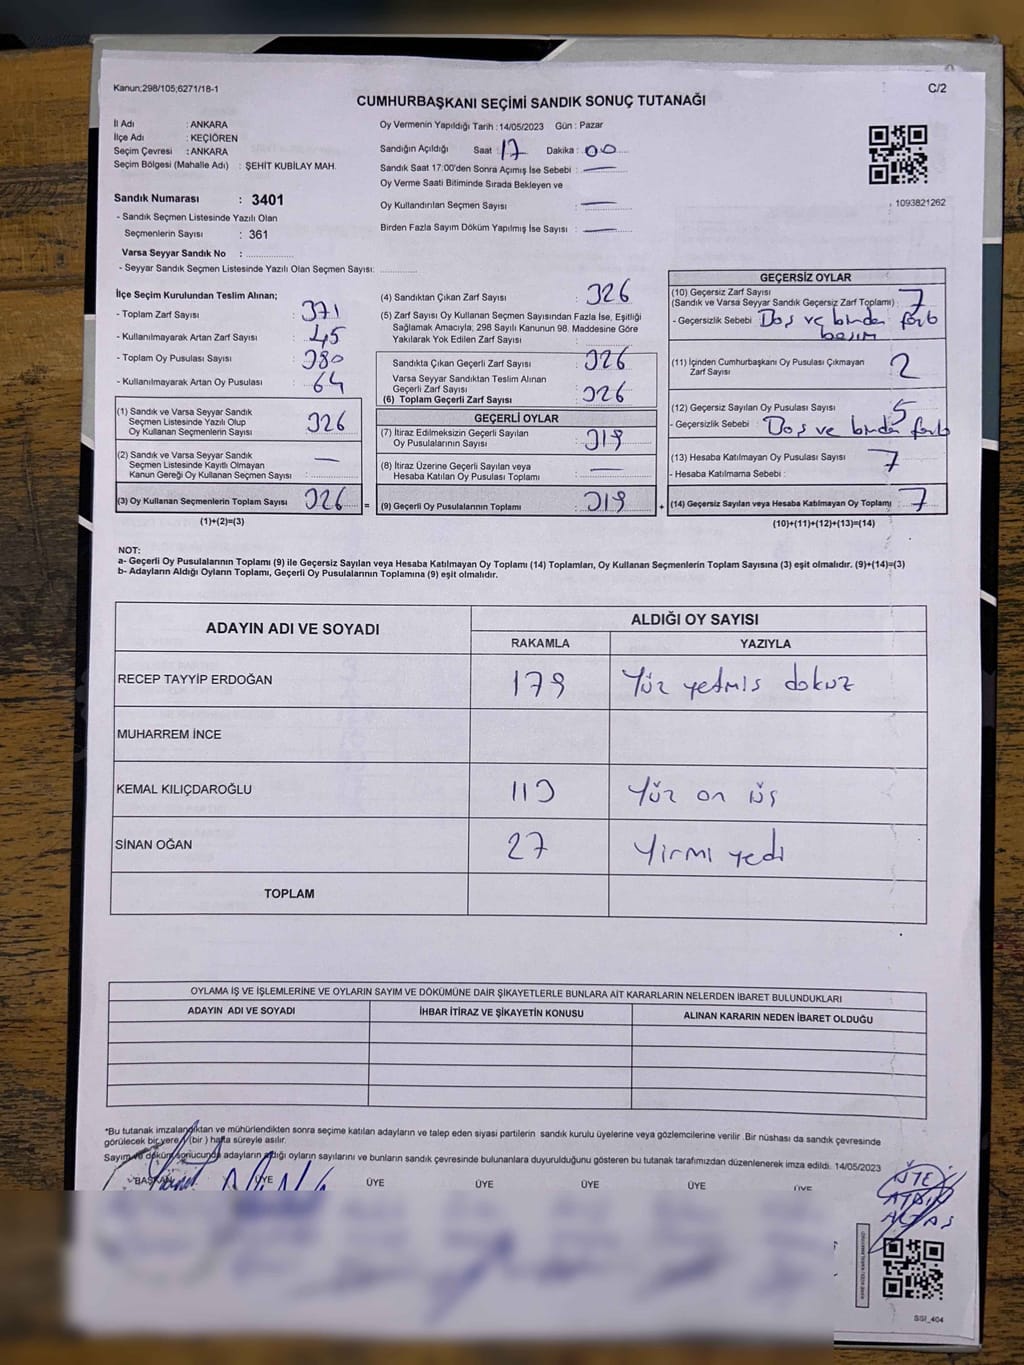 Kanun;298/105;6271/18-1
C/2
CUMHURBAŞKANI SEÇİMİ SANDIK SONUÇ TUTANAĞI
İl Adı : ANKARA
İlçe Adı : KEÇİÖREN
Seçim Çevresi : ANKARA
Seçim Bölgesi (Mahalle Adı) : ŞEHİT KUBİLAY MAH.
Sandık Numarası : 3401
- Sandık Seçmen Listesinde Yazılı Olan
Seçmenlerin Sayısı : 361
Varsa Seyyar Sandık No : ..............
- Seyyar Sandık Seçmen Listesinde Yazılı Olan Seçmen Sayısı: ............
Oy Vermenin Yapıldığı Tarih : 14/05/2023 Gün : Pazar
Sandığın Açıldığı Saat : 17 Dakika : 00
Sandık Saat 17:00'den Sonra Açımış İse Sebebi : —
Oy Verme Saati Bitiminde Sırada Bekleyen ve
Oy Kullandırılan Seçmen Sayısı : —
Birden Fazla Sayım Döküm Yapılmış İse Sayısı : —
1093821262
İlçe Seçim Kurulundan Teslim Alınan;
- Toplam Zarf Sayısı : 371
- Kullanılmayarak Artan Zarf Sayısı : 45
- Toplam Oy Pusulası Sayısı : 380
- Kullanılmayarak Artan Oy Pusulası : 64
(1) Sandık ve Varsa Seyyar Sandık
Seçmen Listesinde Yazılı Olup
Oy Kullanan Seçmenlerin Sayısı : 326
(2) Sandık ve Varsa Seyyar Sandık
Seçmen Listesinde Kayıtlı Olmayan
Kanun Gereği Oy Kullanan Seçmen Sayısı : —
(3) Oy Kullanan Seçmenlerin Toplam Sayısı : 326 =
(1)+(2)=(3)
(4) Sandıktan Çıkan Zarf Sayısı : 326
(5) Zarf Sayısı Oy Kullanan Seçmen Sayısından Fazla İse, Eşitliği
Sağlamak Amacıyla; 298 Sayılı Kanunun 98. Maddesine Göre
Yakılarak Yok Edilen Zarf Sayısı :
Sandıkta Çıkan Geçerli Zarf Sayısı : 326
Varsa Seyyar Sandıktan Teslim Alınan
Geçerli Zarf Sayısı
(6) Toplam Geçerli Zarf Sayısı : 326
GEÇERLİ OYLAR
(7) İtiraz Edilmeksizin Geçerli Sayılan
Oy Pusulalarının Sayısı : 319
(8) İtiraz Üzerine Geçerli Sayılan veya
Hesaba Katılan Oy Pusulası Toplamı : —
(9) Geçerli Oy Pusulalarının Toplamı : 319 +
GEÇERSİZ OYLAR
(10) Geçersiz Zarf Sayısı
(Sandık ve Varsa Seyyar Sandık Geçersiz Zarf Toplamı) : 7
- Geçersizlik Sebebi : Boş ve birden fazla
basım
(11) İçinden Cumhurbaşkanı Oy Pusulası Çıkmayan
Zarf Sayısı : 2
(12) Geçersiz Sayılan Oy Pusulası Sayısı : 5
- Geçersizlik Sebebi : Boş ve birden fazla
(13) Hesaba Katılmayan Oy Pusulası Sayısı : 7
- Hesaba Katılmama Sebebi :
(14) Geçersiz Sayılan veya Hesaba Katılmayan Oy Toplamı : 7
(10)+(11)+(12)+(13)=(14)
NOT:
a- Geçerli Oy Pusulalarının Toplamı (9) ile Geçersiz Sayılan veya Hesaba Katılmayan Oy Toplamı (14) Toplamları, Oy Kullanan Seçmenlerin Toplam Sayısına (3) eşit olmalıdır. (9)+(14)=(3)
b- Adayların Aldığı Oyların Toplamı, Geçerli Oy Pusulalarının Toplamına (9) eşit olmalıdır.
ADAYIN ADI VE SOYADI
ALDIĞI OY SAYISI
RAKAMLA YAZIYLA
RECEP TAYYİP ERDOĞAN 179 Yüz yetmis dokuz
MUHARREM İNCE
KEMAL KILIÇDAROĞLU 113 Yüz on üş
SİNAN OĞAN 27 Yirmi yedi
TOPLAM
OYLAMA İŞ VE İŞLEMLERİNE VE OYLARIN SAYIM VE DÖKÜMÜNE DAİR ŞİKAYETLERLE BUNLARA AİT KARARLARIN NELERDEN İBARET BULUNDUKLARI
ADAYIN ADI VE SOYADI İHBAR İTİRAZ VE ŞİKAYETİN KONUSU ALINAN KARARIN NEDEN İBARET OLDUĞU
*Bu tutanak imzalandıktan ve mühürlendikten sonra seçime katılan adayların ve talep eden siyasi partilerin sandık kurulu üyelerine veya gözlemcilerine verilir .Bir nüshası da sandık çevresinde
görülecek bir yere 1 (bir ) hafta süreyle asılır.
Sayım ve döküm sonucunda adayların aldığı oyların sayılarını ve bunların sandık çevresinde bulunanlara duyurulduğunu gösteren bu tutanak tarafımızdan düzenlenerek imza edildi. 14/05/2023
BAŞKAN ÜYE ÜYE ÜYE ÜYE ÜYE ÜYE
SGI_404